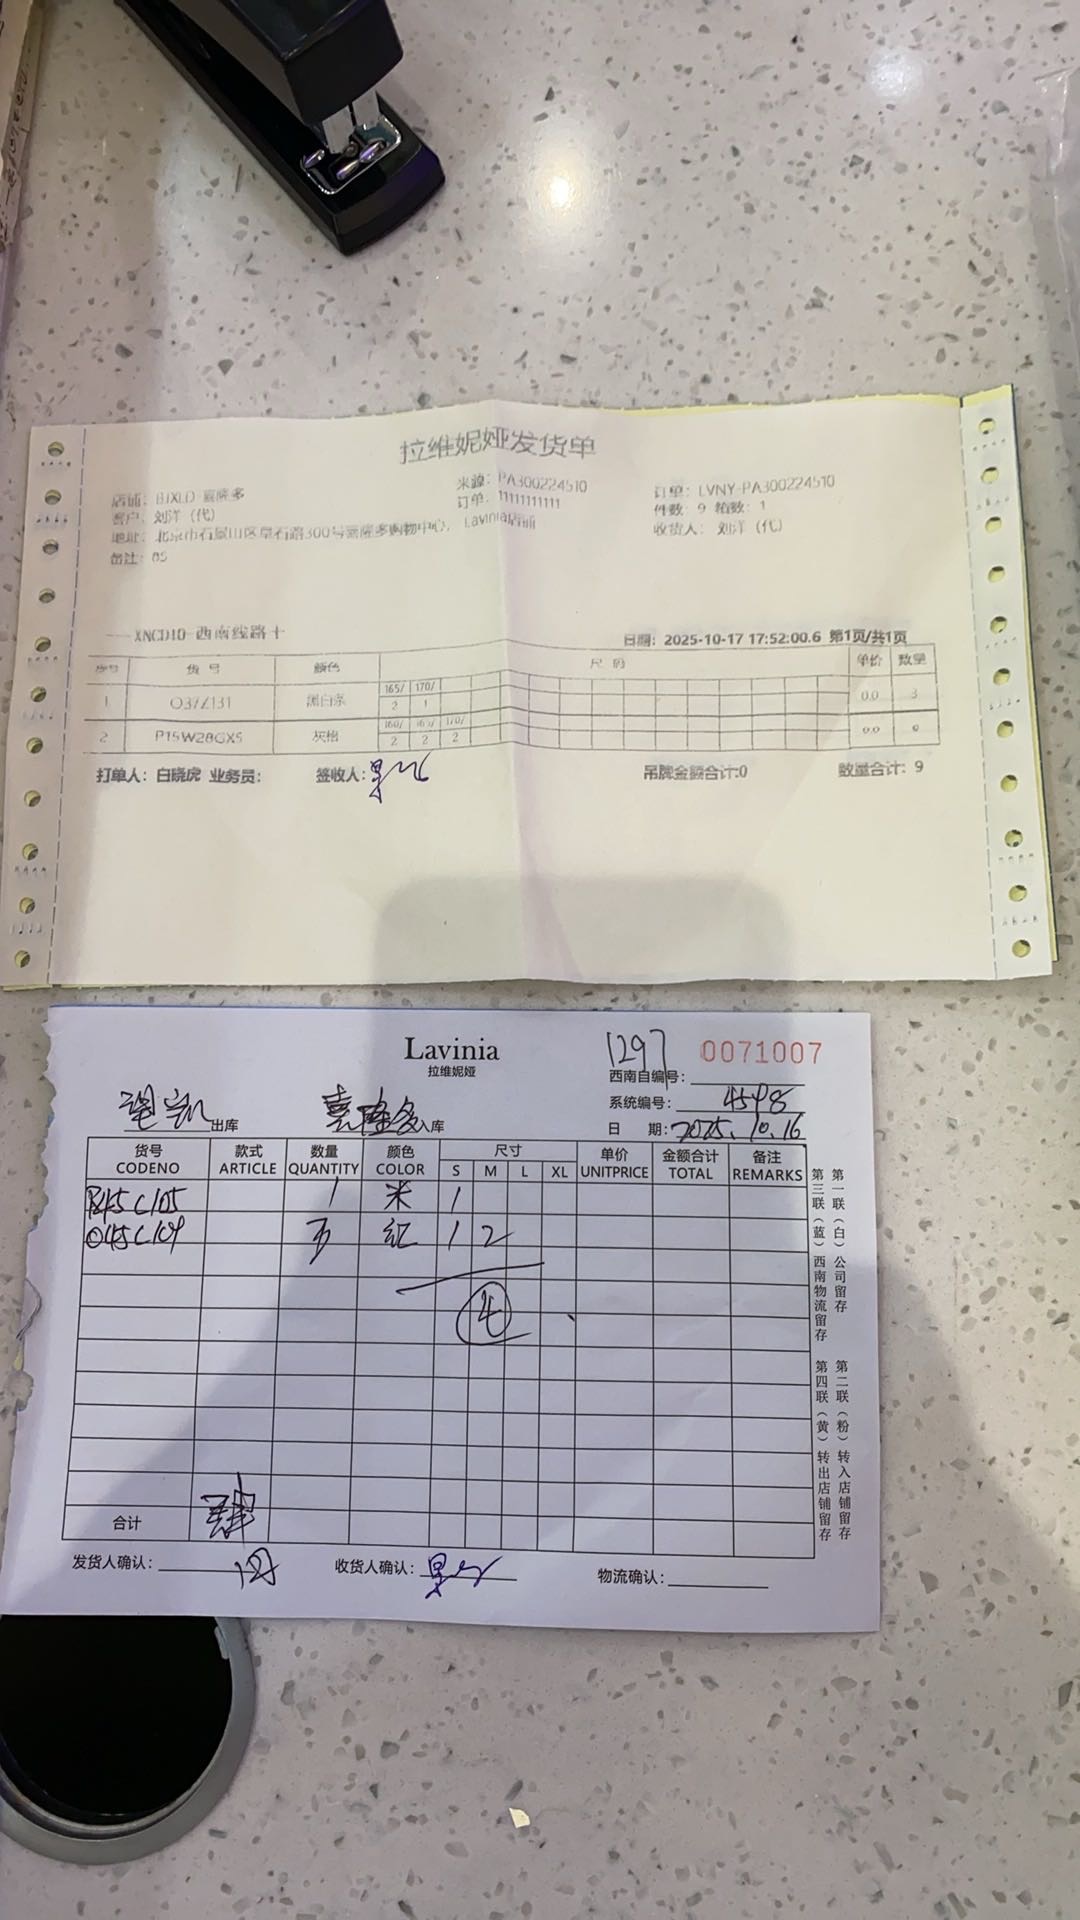 拉维妮娅发货单
店铺：BJXLD-嘉隆多 来源：PA300224510 订单：LVNY-PA300224510
客户：刘洋（代） 订单：11111111111 件数：9 箱数：1
地址：北京市石景山区阜石路300号嘉隆多购物中心，Lavinia店铺 收货人：刘洋（代）
备注：
XNCD10-西南线路十 日期：2025-10-17 17:52:00.6 第1页/共1页
序号 货号 颜色 尺码 单价 数量
165/ 170/
1 O37Z131 黑白条 2 1 0.0 3
160/ 165/ 170/
2 P15W28GX5 灰格 2 2 2 0.0
打单人：白晓虎 业务员： 签收人： 吊牌金额合计:0 数量合计：9
Lavinia
拉维妮娅
1297 0071007
西南自编号：
系统编号：4598
出库 嘉隆多入库 日 期：2025.10.16
货号 款式 数量 颜色 尺寸 单价 金额合计 备注
CODENO ARTICLE QUANTITY COLOR S M L XL UNITPRICE TOTAL REMARKS
R45C105 1 米 1
O45C109 3 红 1 2
④
合计 肆
发货人确认： 收货人确认： 物流确认：
第一联（白）公司留存
第三联（蓝）西南物流留存
第二联（粉）转入店铺留存
第四联（黄）转出店铺留存